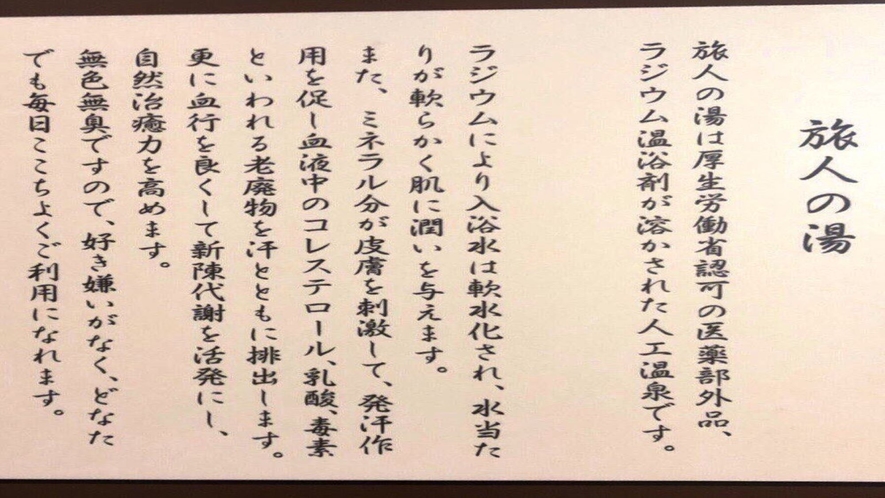 旅人の湯
旅人の湯は厚生労働省認可の医薬部外品、
ラジウム温浴剤が溶かされた人工温泉です。
ラジウムにより入浴水は軟水化され、水当た
りが軟らかく肌に潤いを与えます。
また、ミネラル分が皮膚を刺激して、発汗作
用を促し血液中のコレステロール、乳酸、毒素
といわれる老廃物を汗とともに排出します。
更に血行を良くして新陳代謝を活発にし、
自然治癒力を高めます。
無色無臭ですので、好き嫌いがなく、どなた
でも毎日ここちよくご利用になれます。